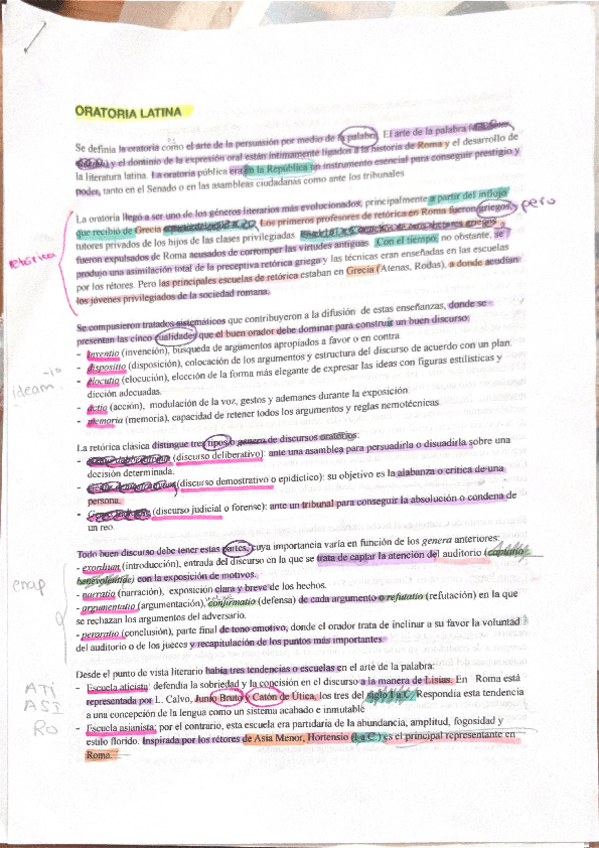 ORATORIA LATINA
Se definía la oratoria como el arte de la persuasión por medio de la palabra. El arte de la palabra
y el dominio de la expresión oral están íntimamente ligados a la historia de Roma y el desarrollo de
la literatura latina. La oratoria pública era en la República un instrumento esencial para conseguir prestigio y
poder, tanto en el Senado o en las asambleas ciudadanas como ante los tribunales.
La oratoria llegó a ser uno de los géneros literarios más evolucionados, principalmente a partir del influjo
que recibió de Grecia Los primeros profesores de retórica en Roma fueron griegos, pero
tutores privados de los hijos de las clases privilegiadas.
retórica
fueron expulsados de Roma acusados de corromper las virtudes antiguas. Con el tiempo, no obstante, se
produjo una asimilación total de la preceptiva retórica griega y las técnicas eran enseñadas en las escuelas
por los rétores. Pero las principales escuelas de retórica estaban en Grecia (Atenas, Rodas), a donde acudían
los jóvenes privilegiados de la sociedad romana.
Se compusieron tratados sistemáticos que contribuyeron a la difusión de estas enseñanzas, donde se
presentan las cinco cualidades que el buen orador debe dominar para construir un buen discurso:
- Inventio (invención), búsqueda de argumentos apropiados a favor o en contra.
- disposito (disposición), colocación de los argumentos y estructura del discurso de acuerdo con un plan.
-io
ideam
- elocutio (elocución), elección de la forma más elegante de expresar las ideas con figuras estilísticas y
dicción adecuadas.
- actio (acción), modulación de la voz, gestos y ademanes durante la exposición.
- memoria (memoria), capacidad de retener todos los argumentos y reglas nemotécnicas.
La retórica clásica distingue tres tipos o genera de discursos oratorios:
- (discurso deliberativo): ante una asamblea para persuadirla o disuadirla sobre una
decisión determinada.
- (discurso demostrativo o epidíctico): su objetivo es la alabanza o crítica de una
persona.
- (discurso judicial o forense): ante un tribunal para conseguir la absolución o condena de
un reo.
Todo buen discurso debe tener estas partes, cuya importancia varía en función de los genera anteriores:
- exordium (introducción), entrada del discurso en la que se trata de captar la atención del auditorio (captatio
benevolentiae) con la exposición de motivos.
enap
- narratio (narración), exposición clara y breve de los hechos.
- argumentatio (argumentación), confirmatio (defensa) de cada argumento o refutatio (refutación) en la que
se rechazan los argumentos del adversario.
- peroratio (conclusión), parte final de tono emotivo, donde el orador trata de inclinar a su favor la voluntad
del auditorio o de los jueces y recapitulación de los puntos más importantes
Desde el punto de vista literario había tres tendencias o escuelas en el arte de la palabra:
- Escuela aticista: defendía la sobriedad y la concisión en el discurso a la manera de Lisias. En Roma está
representada por L. Calvo, Junio Bruto y Catón de Útica, los tres del siglo I a.C. Respondía esta tendencia
a una concepción de la lengua como un sistema acabado e inmutable
ATI
ASI
RO
- Escuela asianista: por el contrario, esta escuela era partidaria de la abundancia, amplitud, fogosidad y
estilo florido. Inspirada por los rétores de Asia Menor, Hortensio (I a.C.) es el principal representante en
Roma.